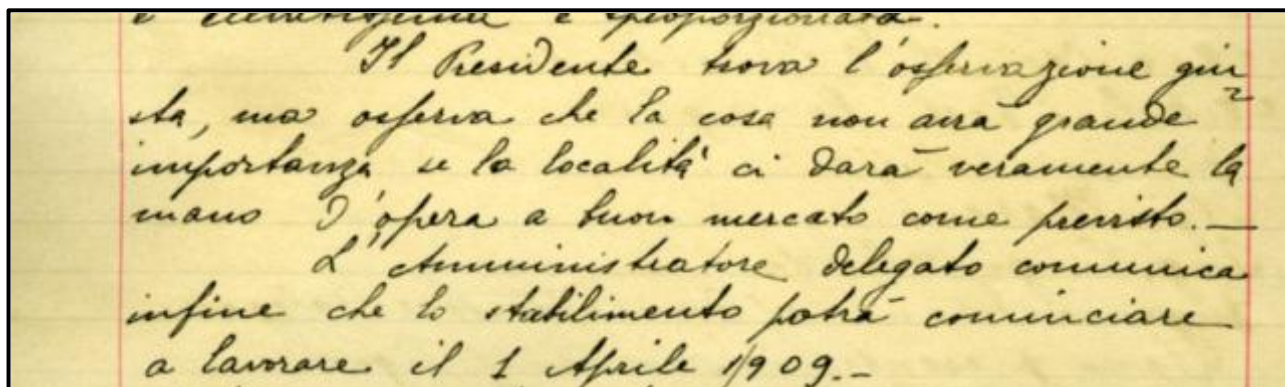 e sproporzionata.
Il Presidente trova l'osservazione giu=
sta, ma osserva che la cosa non avrà grande
importanza se la località ci darà veramente la
mano d'opera a buon mercato come previsto.—
L'Amministratore delegato comunica
infine che lo stabilimento potrà cominciare
a lavorare il 1 Aprile 1909.—